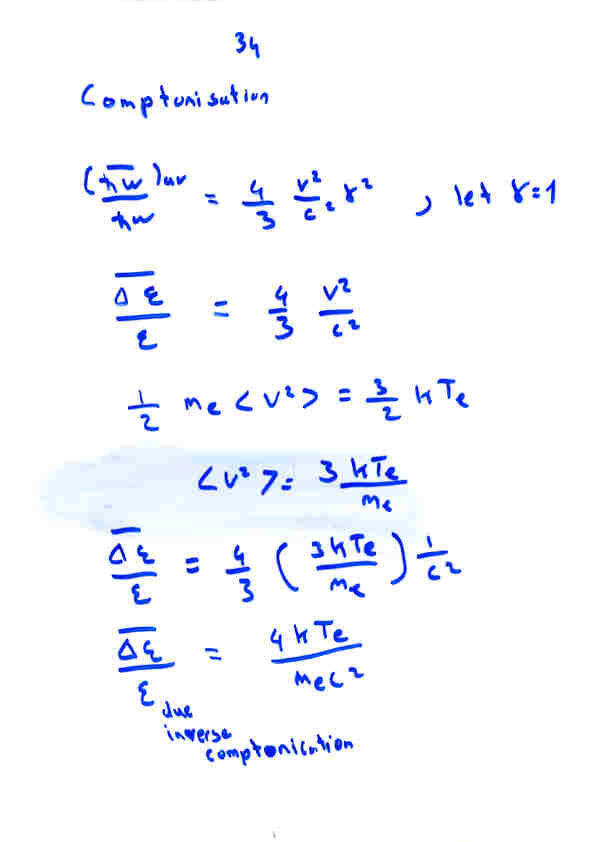 34
Comptonisation
(ħw)av / ħw = 4/3 v²/c² γ² , let γ=1
Δε / ε = 4/3 v²/c²
1/2 me <v²> = 3/2 kTe
<v²> = 3kTe / me
Δε / ε = 4/3 (3kTe / me) 1/c²
Δε / ε = 4kTe / mec²
due
inverse
comptonisation